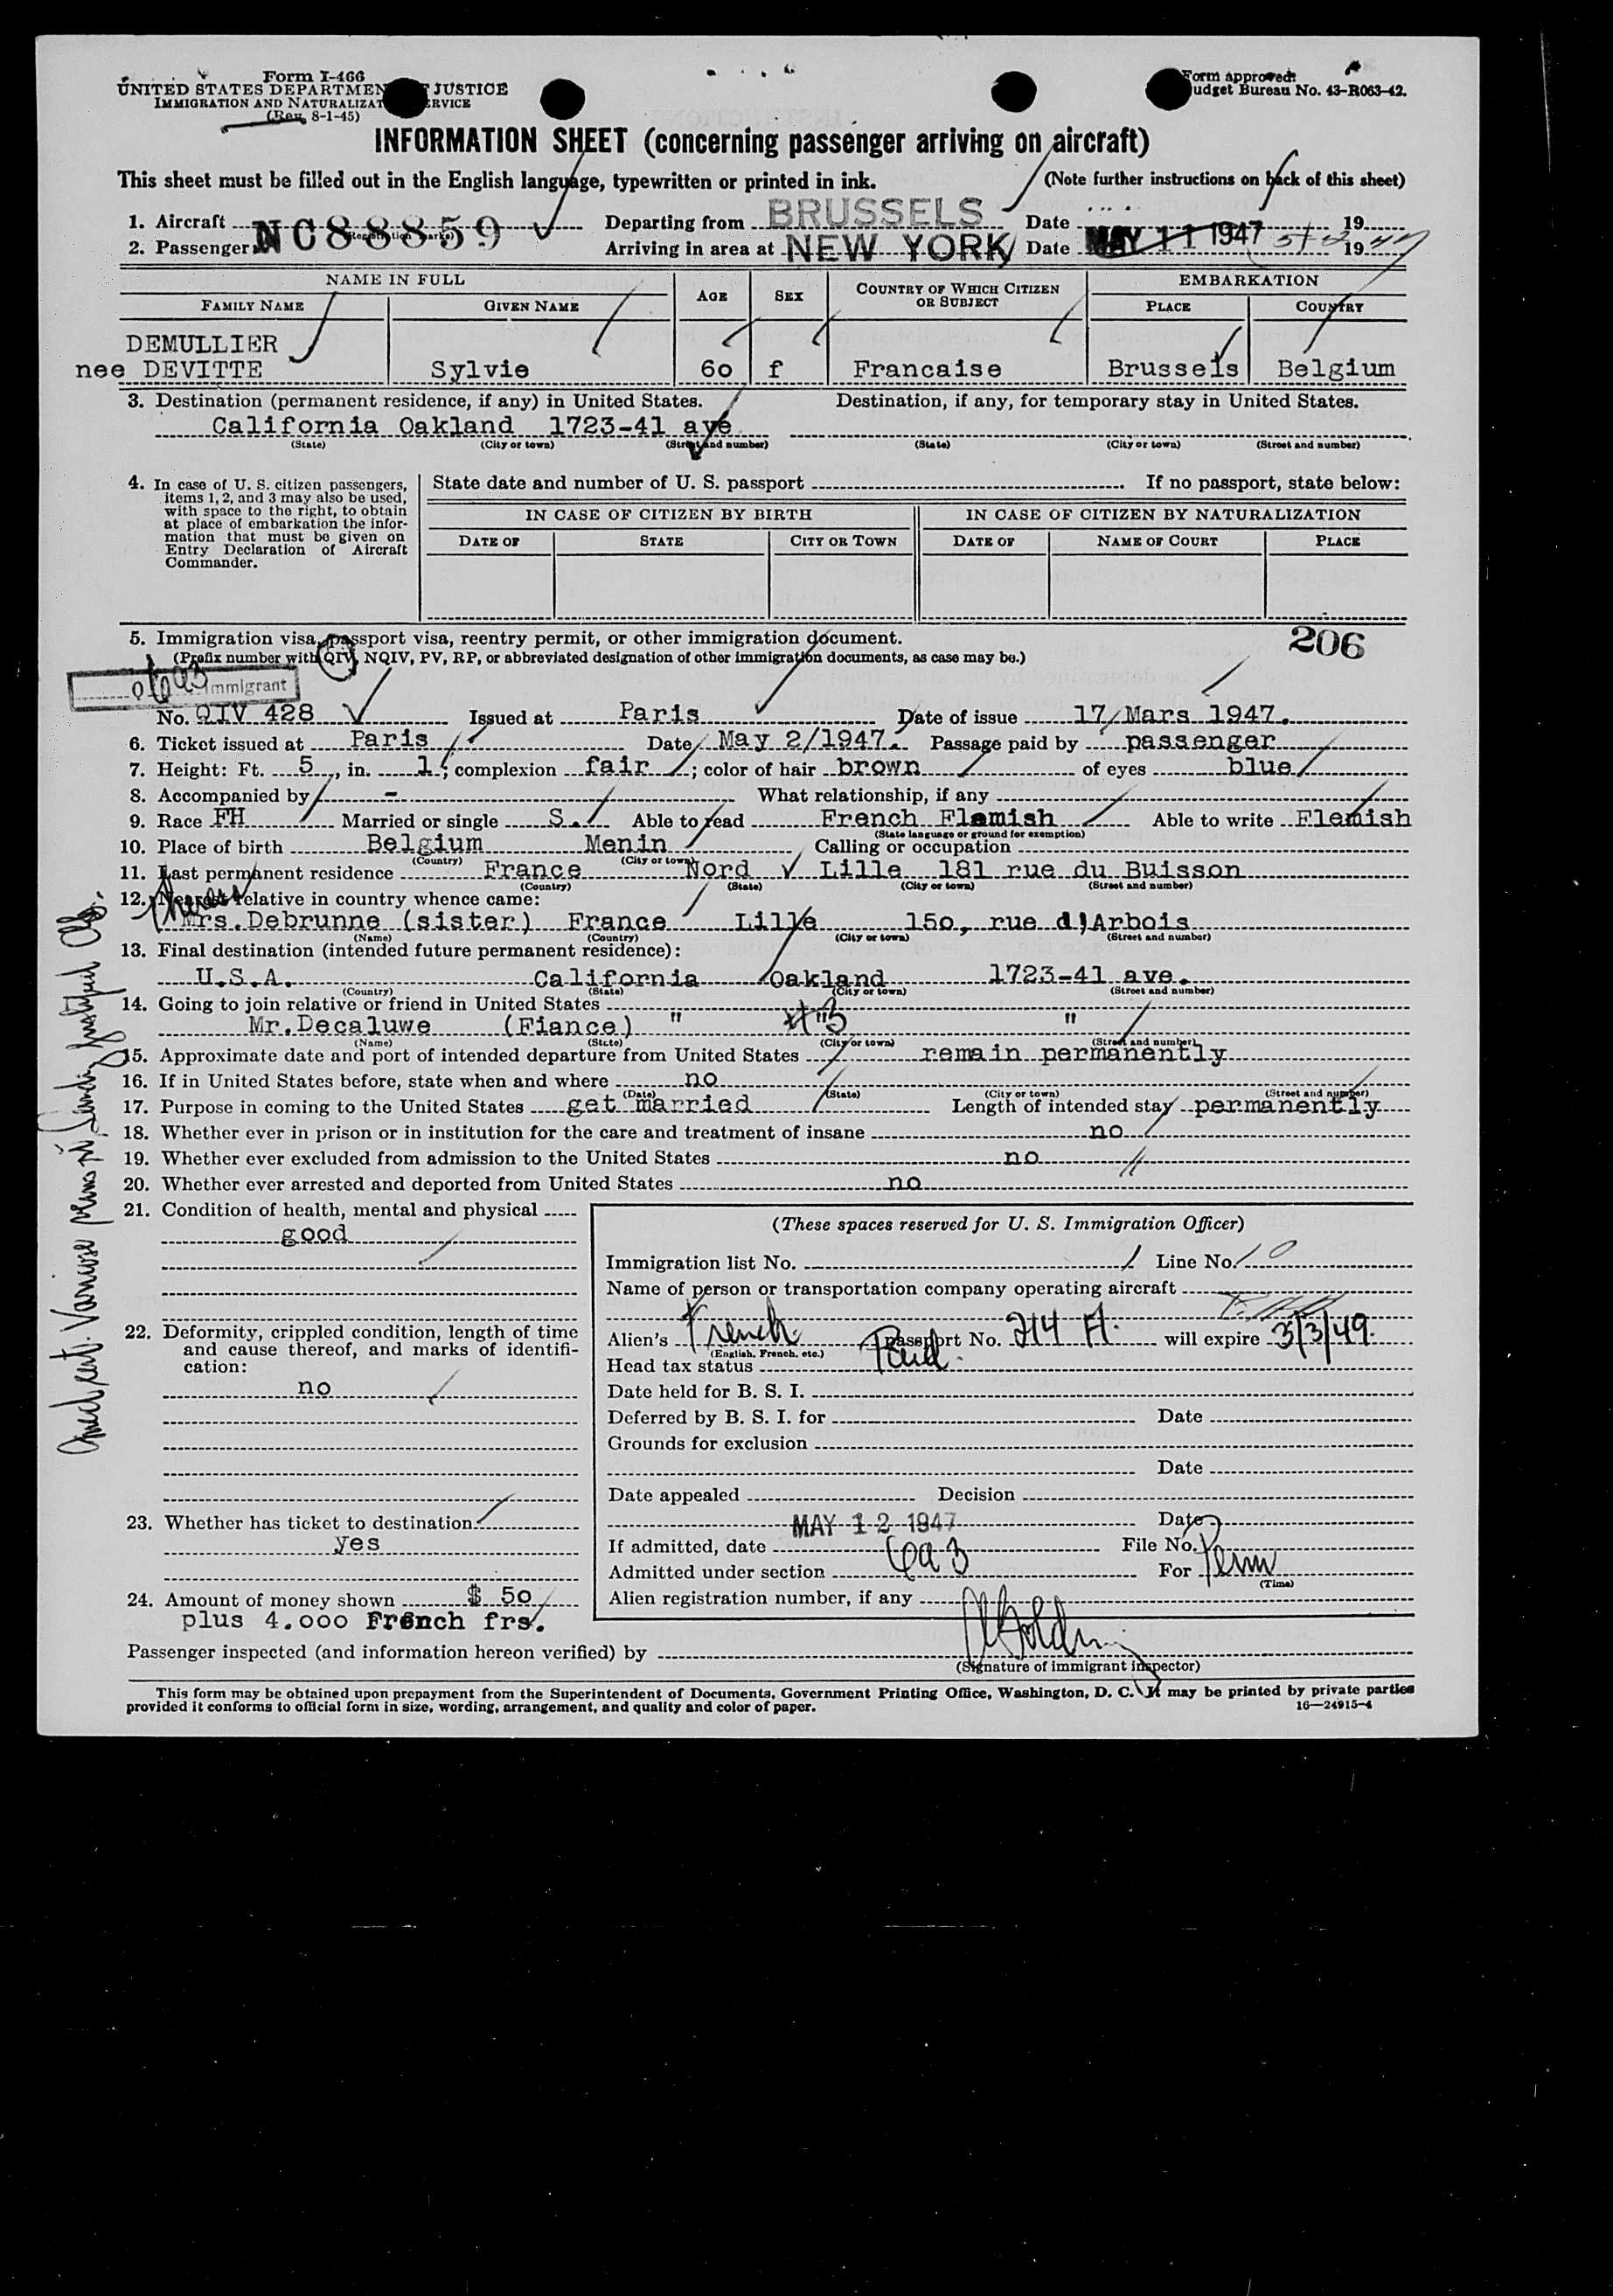 Form I-466
UNITED STATES DEPARTMEN JUSTICE
IMMIGRATION AND NATURALIZAT ERVICE
(Rev. 8-1-45)
Form approved:
udget Bureau No. 43-R063-42.
INFORMATION SHEET (concerning passenger arriving on aircraft)
This sheet must be filled out in the English language, typewritten or printed in ink. (Note further instructions on back of this sheet)
1. Aircraft NC88859 Departing from BRUSSELS Date 19
(Registration marks)
2. Passenger Arriving in area at NEW YORK Date MAY 11 1947 19
NAME IN FULL AGE SEX COUNTRY OF WHICH CITIZEN OR SUBJECT EMBARKATION
FAMILY NAME GIVEN NAME PLACE COUNTRY
DEMULLIER
nee DEVITTE Sylvie 60 f Francaise Brussels Belgium
3. Destination (permanent residence, if any) in United States. Destination, if any, for temporary stay in United States.
California Oakland 1723-41 ave
(State) (City or town) (Street and number) (State) (City or town) (Street and number)
4. In case of U. S. citizen passengers, items 1, 2, and 3 may also be used, with space to the right, to obtain at place of embarkation the information that must be given on Entry Declaration of Aircraft Commander.
State date and number of U. S. passport If no passport, state below:
IN CASE OF CITIZEN BY BIRTH IN CASE OF CITIZEN BY NATURALIZATION
DATE OF STATE CITY OR TOWN DATE OF NAME OF COURT PLACE
5. Immigration visa, passport visa, reentry permit, or other immigration document. 206
(Prefix number with QIV, NQIV, PV, RP, or abbreviated designation of other immigration documents, as case may be.)
Immigrant
No. QIV 428 Issued at Paris Date of issue 17/Mars 1947.
6. Ticket issued at Paris Date May 2/1947. Passage paid by passenger
7. Height: Ft. 5, in. 1; complexion fair; color of hair brown of eyes blue
8. Accompanied by - What relationship, if any
9. Race FH Married or single S. Able to read French Flemish Able to write Flemish
(State language or ground for exemption)
10. Place of birth Belgium Menin Calling or occupation
(Country) (City or town)
11. Last permanent residence France Nord Lille 181 rue du Buisson
(Country) (State) (City or town) (Street and number)
12. Nearest relative in country whence came:
Mrs.Debrunne (sister) France Lille 150, rue d'Arbois
(Name) (Country) (City or town) (Street and number)
13. Final destination (intended future permanent residence):
U.S.A. California Oakland 1723-41 ave.
(Country) (State) (City or town) (Street and number)
14. Going to join relative or friend in United States
Mr.Decaluwe (Fiance) " " "
(Name) (State) (City or town) (Street and number)
15. Approximate date and port of intended departure from United States remain permanently
16. If in United States before, state when and where no
(Date) (State) (City or town) (Street and number)
17. Purpose in coming to the United States get married Length of intended stay permanently
18. Whether ever in prison or in institution for the care and treatment of insane no
19. Whether ever excluded from admission to the United States no
20. Whether ever arrested and deported from United States no
21. Condition of health, mental and physical
good
22. Deformity, crippled condition, length of time and cause thereof, and marks of identification:
no
23. Whether has ticket to destination
yes
24. Amount of money shown $ 50
plus 4.000 French frs.
(These spaces reserved for U. S. Immigration Officer)
Immigration list No. Line No. 10
Name of person or transportation company operating aircraft
Alien's French passport No. 214 will expire 3/3/49.
(English, French, etc.)
Head tax status Paid.
Date held for B. S. I.
Deferred by B. S. I. for Date
Grounds for exclusion
Date
Date appealed Decision
Date
MAY 12 1947
If admitted, date File No.
Admitted under section 6a3 For Perm
(Time)
Alien registration number, if any
Passenger inspected (and information hereon verified) by
(Signature of immigrant inspector)
This form may be obtained upon prepayment from the Superintendent of Documents, Government Printing Office, Washington, D. C. It may be printed by private parties
provided it conforms to official form in size, wording, arrangement, and quality and color of paper. 16—24915-4